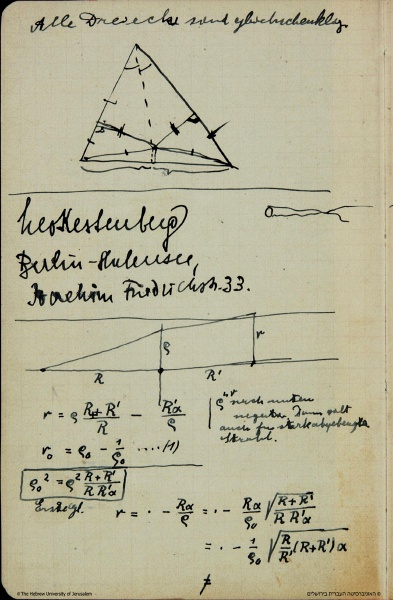 Alle Dreiecke sind gleichschenklig.
Leo Kestenberg
Berlin-Halensee,
Joachim Friedrichstr. 33.
ρ
r
R
R'
r = ρ (R+R')/R − R'α/ρ
r₀ = ρ₀ − 1/ρ₀ ....(1)
nach unten
negativ. Dann gilt
auch für stark abgebeugten
Strahl.
ρ₀² = ρ² (R+R')/(R R'α)
r = · − Rα/ρ = · − Rα/ρ₀ √((R+R')/(R R'α))
= · − 1/ρ₀ √(R/R' (R+R') α)
© The Hebrew University of Jerusalem
© האוניברסיטה העברית בירושלים